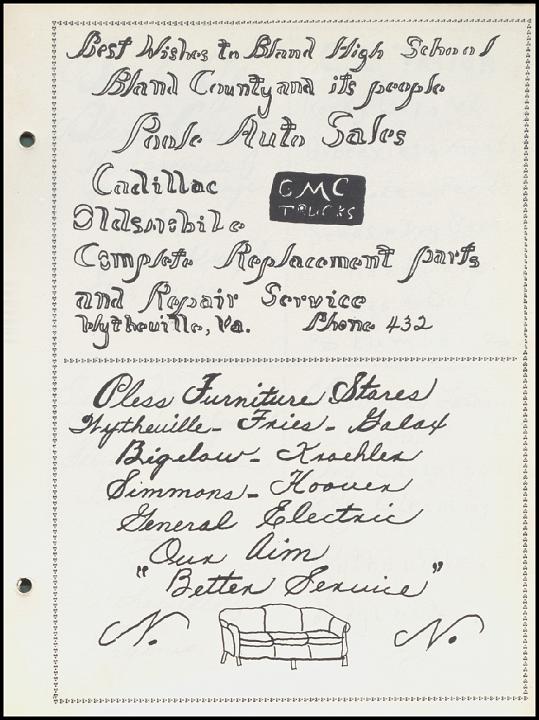 Best Wishes to Bland High School
Bland County and its people
Poole Auto Sales
Cadillac
GMC
TRUCKS
Oldsmobile
Complete Replacement parts
and Repair Service
Wytheville, Va. Phone 432
Pless Furniture Stores
Wytheville - Fries - Galax
Bigelow - Kroehler
Simmons - Hoover
General Electric
Our Aim
"Better Service"
N. N.